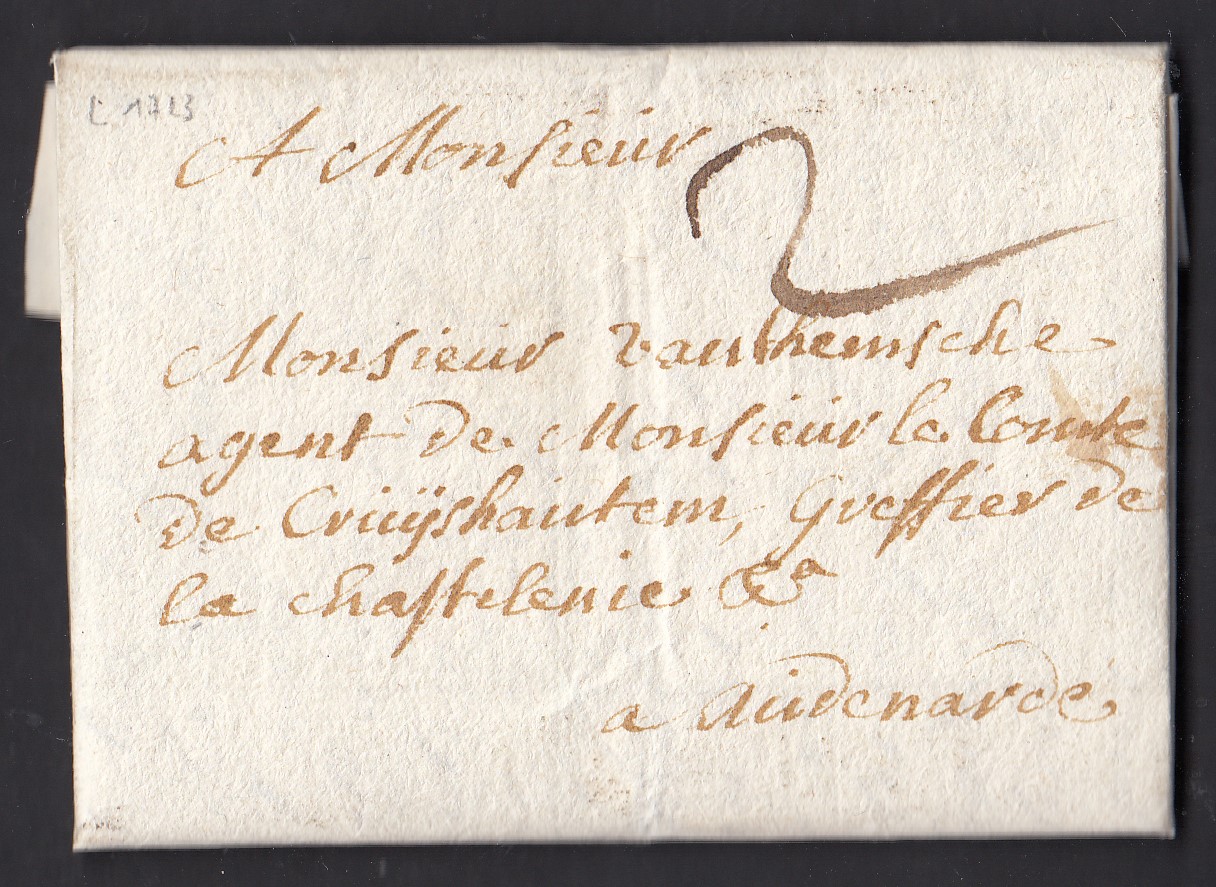 L 1723
A Monsieur
2
Monsieur vanthemsche
agent de Monsieur le Comte
de Cruÿshautem, Greffier de
la chastelenie &a
a Audenarde